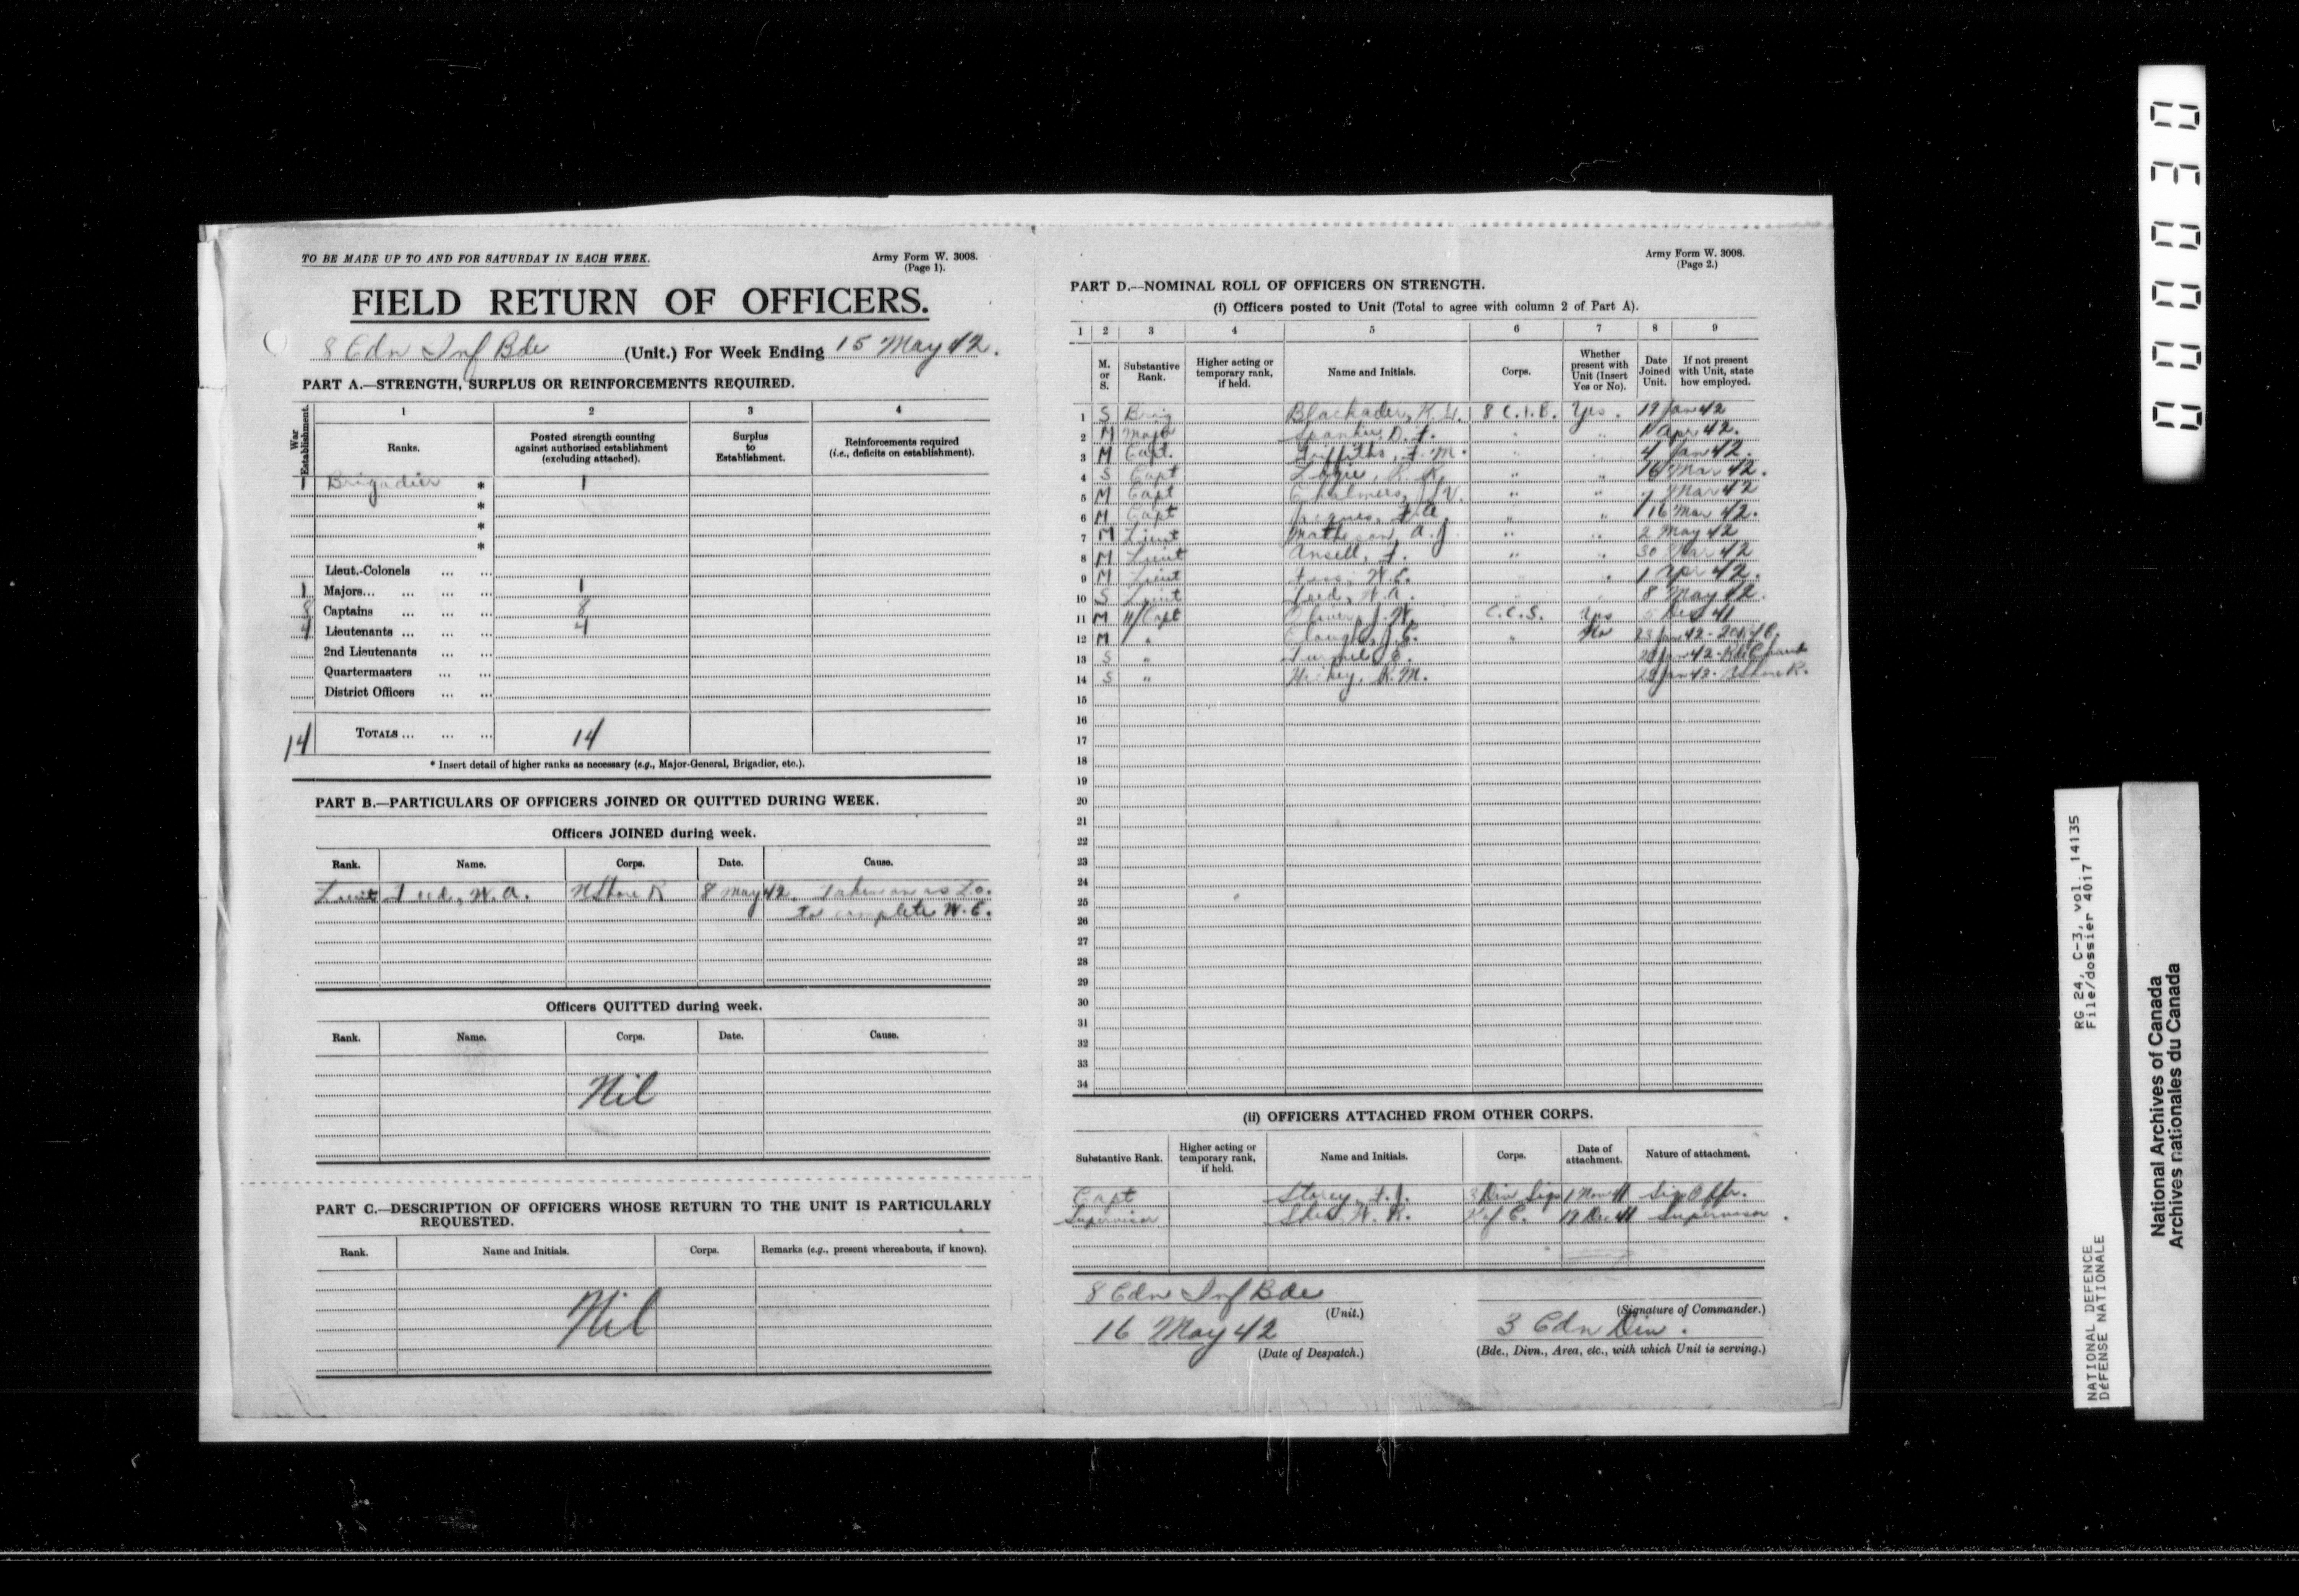 TO BE MADE UP TO AND FOR SATURDAY IN EACH WEEK.
Army Form W. 3008.
(Page 1).
FIELD RETURN OF OFFICERS.
8 Cdn Inf Bde (Unit.) For Week Ending 15 May 42.
PART A.—STRENGTH, SURPLUS OR REINFORCEMENTS REQUIRED.
War Establishment.
1 2 3 4
Ranks.
Posted strength counting against authorised establishment (excluding attached).
Surplus to Establishment.
Reinforcements required (i.e., deficits on establishment).
1 Brigadier * 1
*
*
*
Lieut.-Colonels ... ...
1 Majors... ... ... ... 1
8 Captains ... ... ... 8
4 Lieutenants ... ... ... 4
2nd Lieutenants ... ...
Quartermasters ... ...
District Officers ... ...
14 TOTALS ... ... ... 14
* Insert detail of higher ranks as necessary (e.g., Major-General, Brigadier, etc.).
PART B.—PARTICULARS OF OFFICERS JOINED OR QUITTED DURING WEEK.
Officers JOINED during week.
Rank. Name. Corps. Date. Cause.
Lieut W. A. N Shore R 8 May 42. Taken on as L.O.
to complete W.E.
Officers QUITTED during week.
Rank. Name. Corps. Date. Cause.
Nil
PART C.—DESCRIPTION OF OFFICERS WHOSE RETURN TO THE UNIT IS PARTICULARLY
REQUESTED.
Rank. Name and Initials. Corps. Remarks (e.g., present whereabouts, if known).
Nil
Army Form W. 3008.
(Page 2.)
PART D.—NOMINAL ROLL OF OFFICERS ON STRENGTH.
(i) Officers posted to Unit (Total to agree with column 2 of Part A).
1 2 3 4 5 6 7 8 9
M. or S.
Substantive Rank.
Higher acting or temporary rank, if held.
Name and Initials.
Corps.
Whether present with Unit (Insert Yes or No).
Date Joined Unit.
If not present with Unit, state how employed.
1 S Brig Blackader, K.G. 8 C.I.B. Yes. 19 Jan 42
2 M Major Spankie, D. F. " " 1 Apr 42.
3 M Capt. Griffiths, F. M. " " 4 Jan 42.
4 S Capt Logie, R. K. " " 16 Mar 42.
5 M Capt Chalmers, J.V. " " Mar 42
6 M Capt Jacques, " " 16 Mar 42.
7 M Lieut Matheson, A. J. " " 2 May 42
8 M Lieut Ansell, F. " " 30 Mar 42
9 M Lieut W.E. " 1 Apr 42.
10 S Lieut W.A. 8 May 42.
11 M H/Capt J. W. C.C.S. Yes Dec 41
12 M " Clough, J.C. " No 23 Jan 42 -
13 S " 42 - R de Chaud
14 S " Hickey, R. M. Jan 42 - N Shore R.
15
16
17
18
19
20
21
22
23
24
25
26
27
28
29
30
31
32
33
34
(ii) OFFICERS ATTACHED FROM OTHER CORPS.
Substantive Rank.
Higher acting or temporary rank, if held.
Name and Initials.
Corps.
Date of attachment.
Nature of attachment.
Capt Storey, F. J. 3 Div Sigs 1 Nov 41 Sig Offr.
Supervisor W. R. K of C. 19 Dec 41 Supervisor.
8 Cdn Inf Bde
(Unit.)
16 May 42
(Date of Despatch.)
(Signature of Commander.)
3 Cdn Div.
(Bde., Divn., Area, etc., with which Unit is serving.)
000030
RG 24, C-3, vol. 14135
File/dossier 4017
NATIONAL DEFENCE
DéFENSE NATIONALE
National Archives of Canada
Archives nationales du Canada